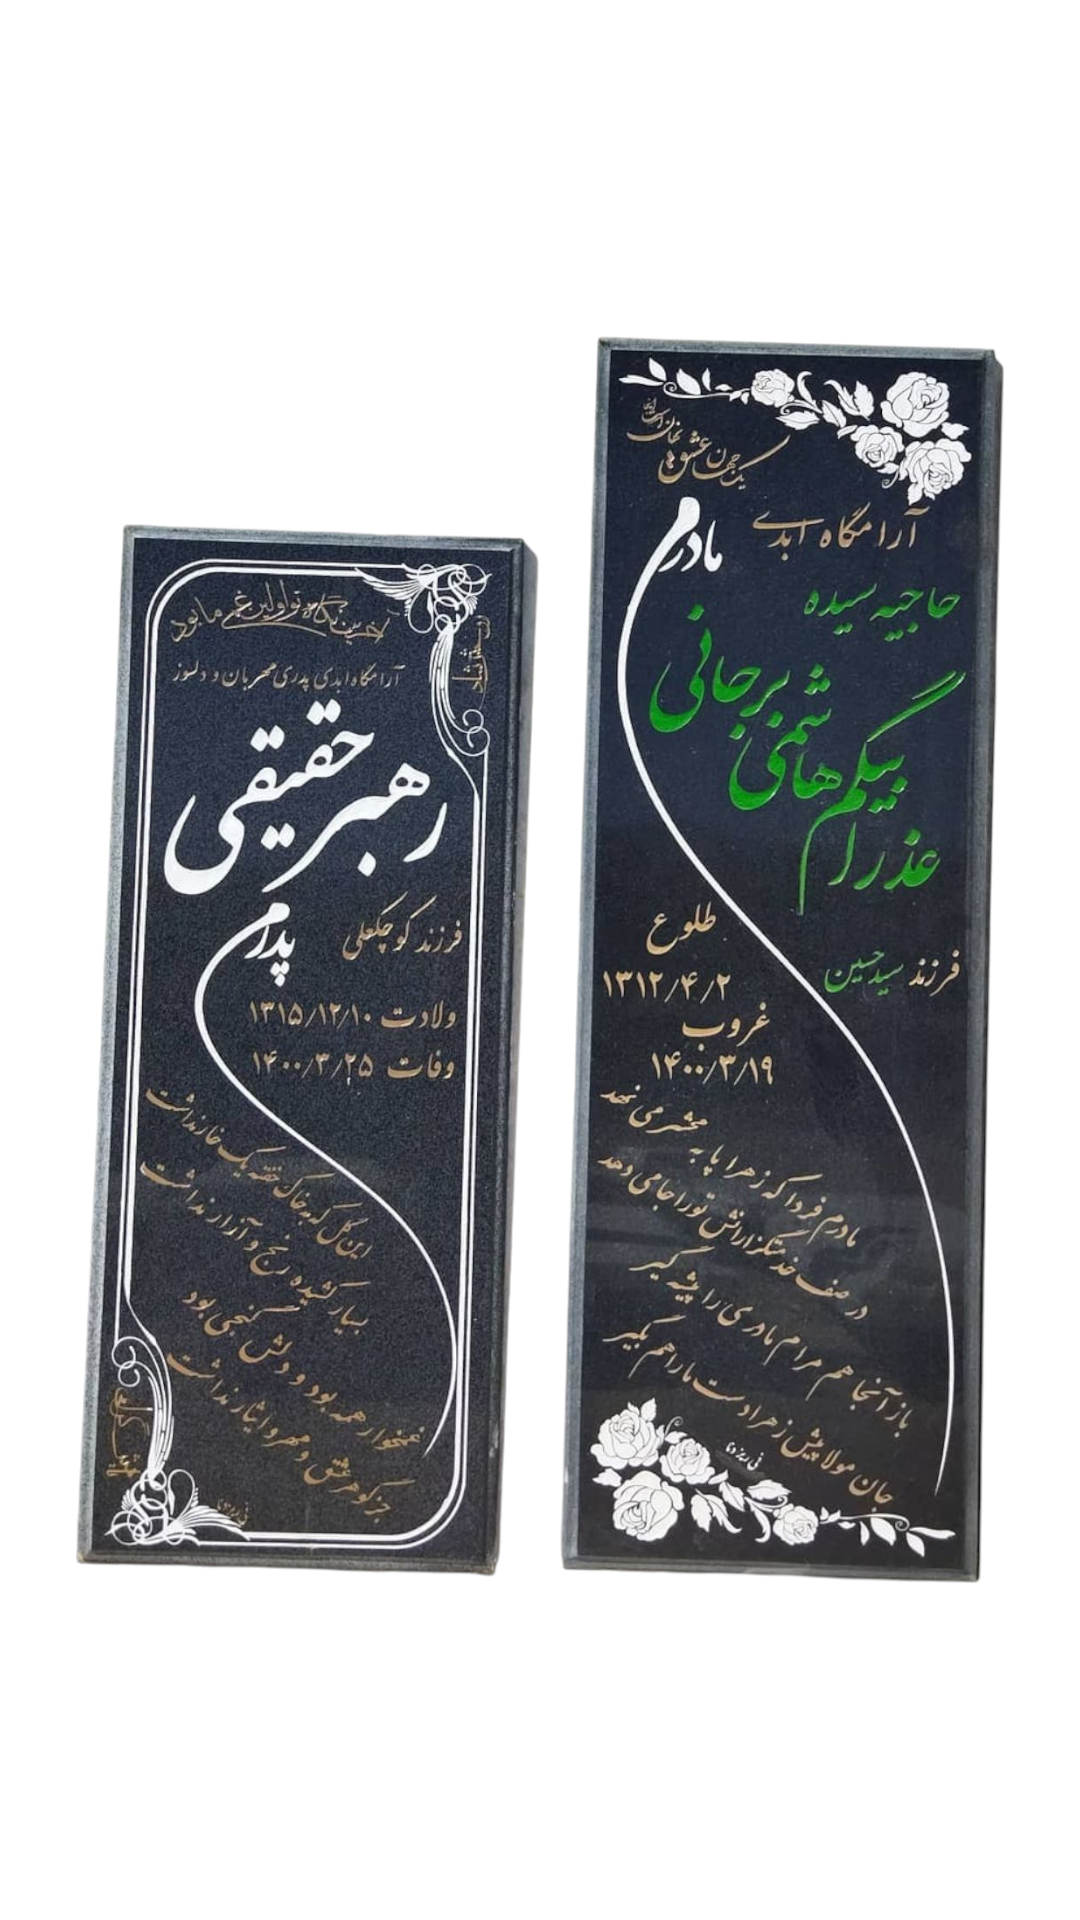 آخرین نگاه تو اولین غم ما بود
روحش شاد
آرامگاه ابدی پدری مهربان و دلسوز
رهبر حقیقی
پدرم
فرزند کوچکعلی
ولادت ۱۳۱۵/۱۲/۱۰
وفات ۱۴۰۰/۳/۲۵
این گل که به خاک خفته یک خار نداشت
بسیار کشیده رنج و آزار نداشت
غمخوار همه بود و دلش گنجی بود
جز گوهر عشق و مهر و ایثار نداشت
یک جهان عشق نهان است اینجا
آرامگاه ابدی
مادرم
حاجیه سیده
عذرا بیگم هاشمی برجانی
فرزند سید حسین
طلوع
۱۳۱۲/۴/۲
غروب
۱۴۰۰/۳/۱۹
مادرم فردا که زهرا پا به محشر می نهد
در صف خدمتگزارانش تو را جا می دهد
باز آنجا هم مرام مادری را پیشه گیر
جان مولا پیش زهرا دست ما را هم بگیر